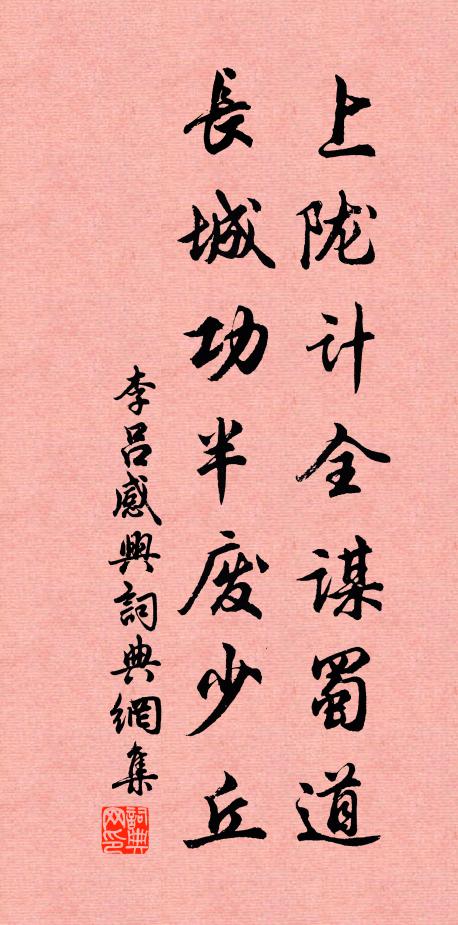 上陇计全谋蜀道
長城功半废少丘
李吕感興詞典網集
詞典网印